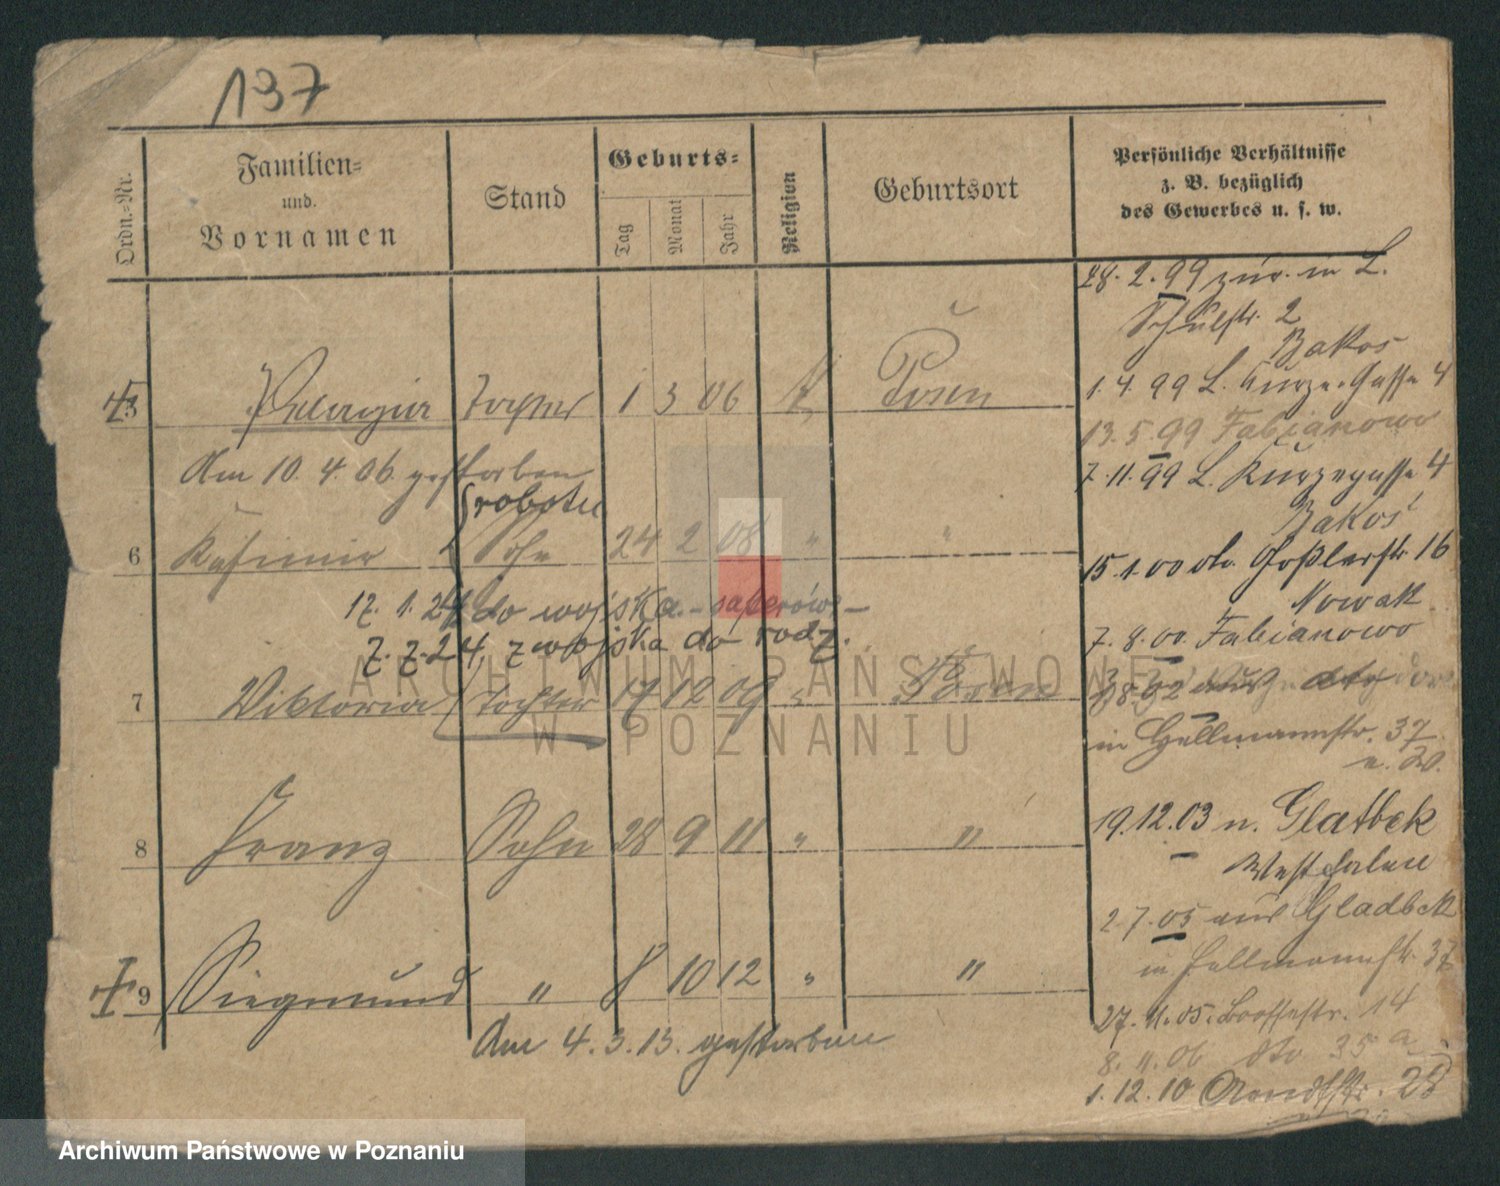 137
Ordn.-Nr.
Familien- und Vornamen
Stand
Geburts-
Tag
Monat
Jahr
Religion
Geburtsort
Persönliche Verhältnisse
z. B. bezüglich
des Gewerbes u. s. w.
5 Pelagia Tochter 1 3 06 Posen
Am 10. 4. 06. gestorben
robotn
6 Kasimir Sohn 24 2 08 " "
17. 1. 24 do wojska - saperów -
7. 7. 24, z wojska do rodz.
7 Viktoria Tochter 17 12 09 " Posen
8 Franz Sohn 28 9 11 " "
9 Siegmund " 8 10 12 " "
Am 4. 3. 13. gestorben
28. 2. 99 zur. in L.
Schulstr. 2
Bakos
1. 4. 99 L. Kurze Gasse 4
13. 5. 99 Fabianowo
7. 11. 99 L. Kurzegasse 4
Bakoś
15. 1. 00 dto. Goßlerstr. 16
Nowak
7. 8. 00. Fabianowo
in Hellmannstr. 37
19. 12. 03 n. Glatbek
Westfalen
2. 7. 05 aus Gladbek
in Hellmannstr. 37
27. 11. 05. Boossestr. 14
8. 11. 06 dto 35 a
1. 12. 10 Arndtstr. 28
ARCHIWUM PAŃSTWOWE
W POZNANIU
Archiwum Państwowe w Poznaniu